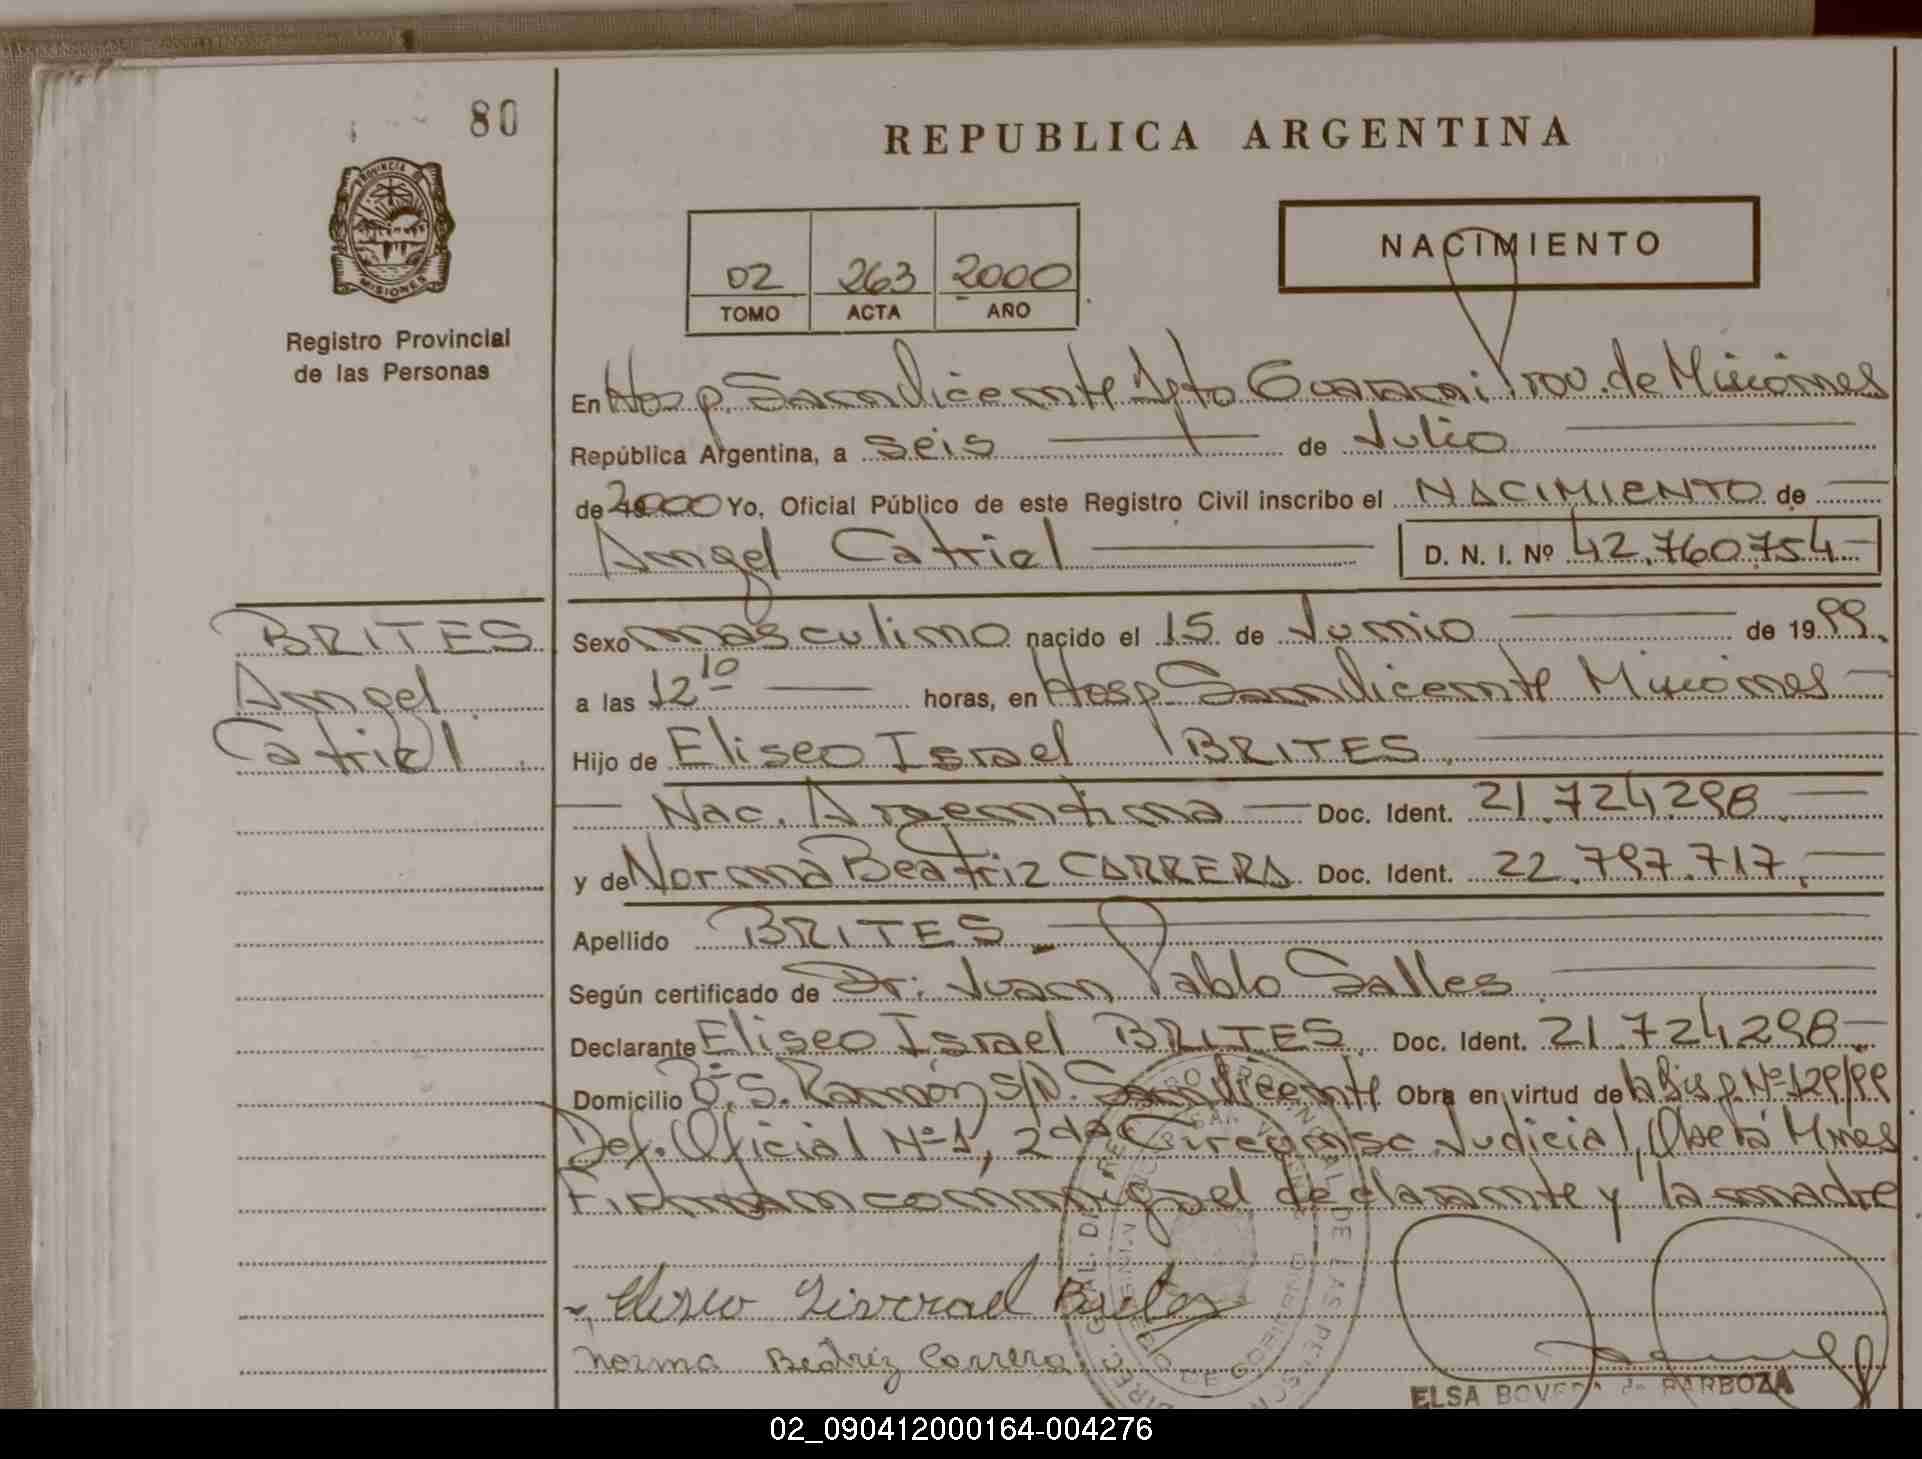 80
REPUBLICA ARGENTINA
PROVINCIA DE
MISIONES
Registro Provincial
de las Personas
02 263 2000
TOMO ACTA AÑO
NACIMIENTO
En Hosp San Vicente Dpto Guarani Prov. de Misiones
República Argentina, a seis de Julio
de 2000 Yo, Oficial Público de este Registro Civil inscribo el NACIMIENTO de
Angel Catriel D. N. I. Nº 42.760.754
BRITES
Angel
Catriel
Sexo masculino nacido el 15 de Junio de 1999
a las 12 10 horas, en Hosp San Vicente Misiones
Hijo de Eliseo Israel BRITES
Nac. Argentina Doc. Ident. 21.724.298
y de Norma Beatriz CARRERA Doc. Ident. 22.797.717
Apellido BRITES
Según certificado de Dr: Juan Pablo Salles
Declarante Eliseo Israel BRITES Doc. Ident. 21.724.298
Domicilio Bº S. Ramón s/n. San Vicente Obra en virtud de la Disp Nº 129/99
Def. Oficial Nº 1, 2da Circunsc. Judicial, Oberá Mnes
Firman conmigo el declarante y la madre
Eliseo Brites
Norma Beatriz Carrera
ELSA BOVEDA de BARBOZA
02_090412000164-004276